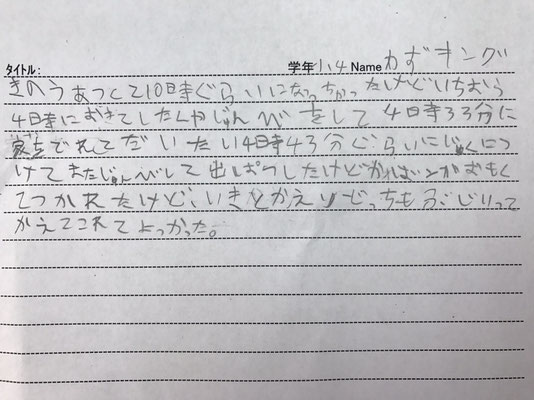 タイトル: 学年小4 Name かずキング
きのうあつくて10時ぐらいになっちゃったけどいちおう
4時におきてしたくやじゅんびをして4時33分に
家をでれてだいたい4時43分ぐらいにじゅくにつ
けてまたじゅんびして出ぱつしたけどかばんとかおもく
てつかれたけど、いきとかえりどっちもぶじ
かえてこれてよかった。